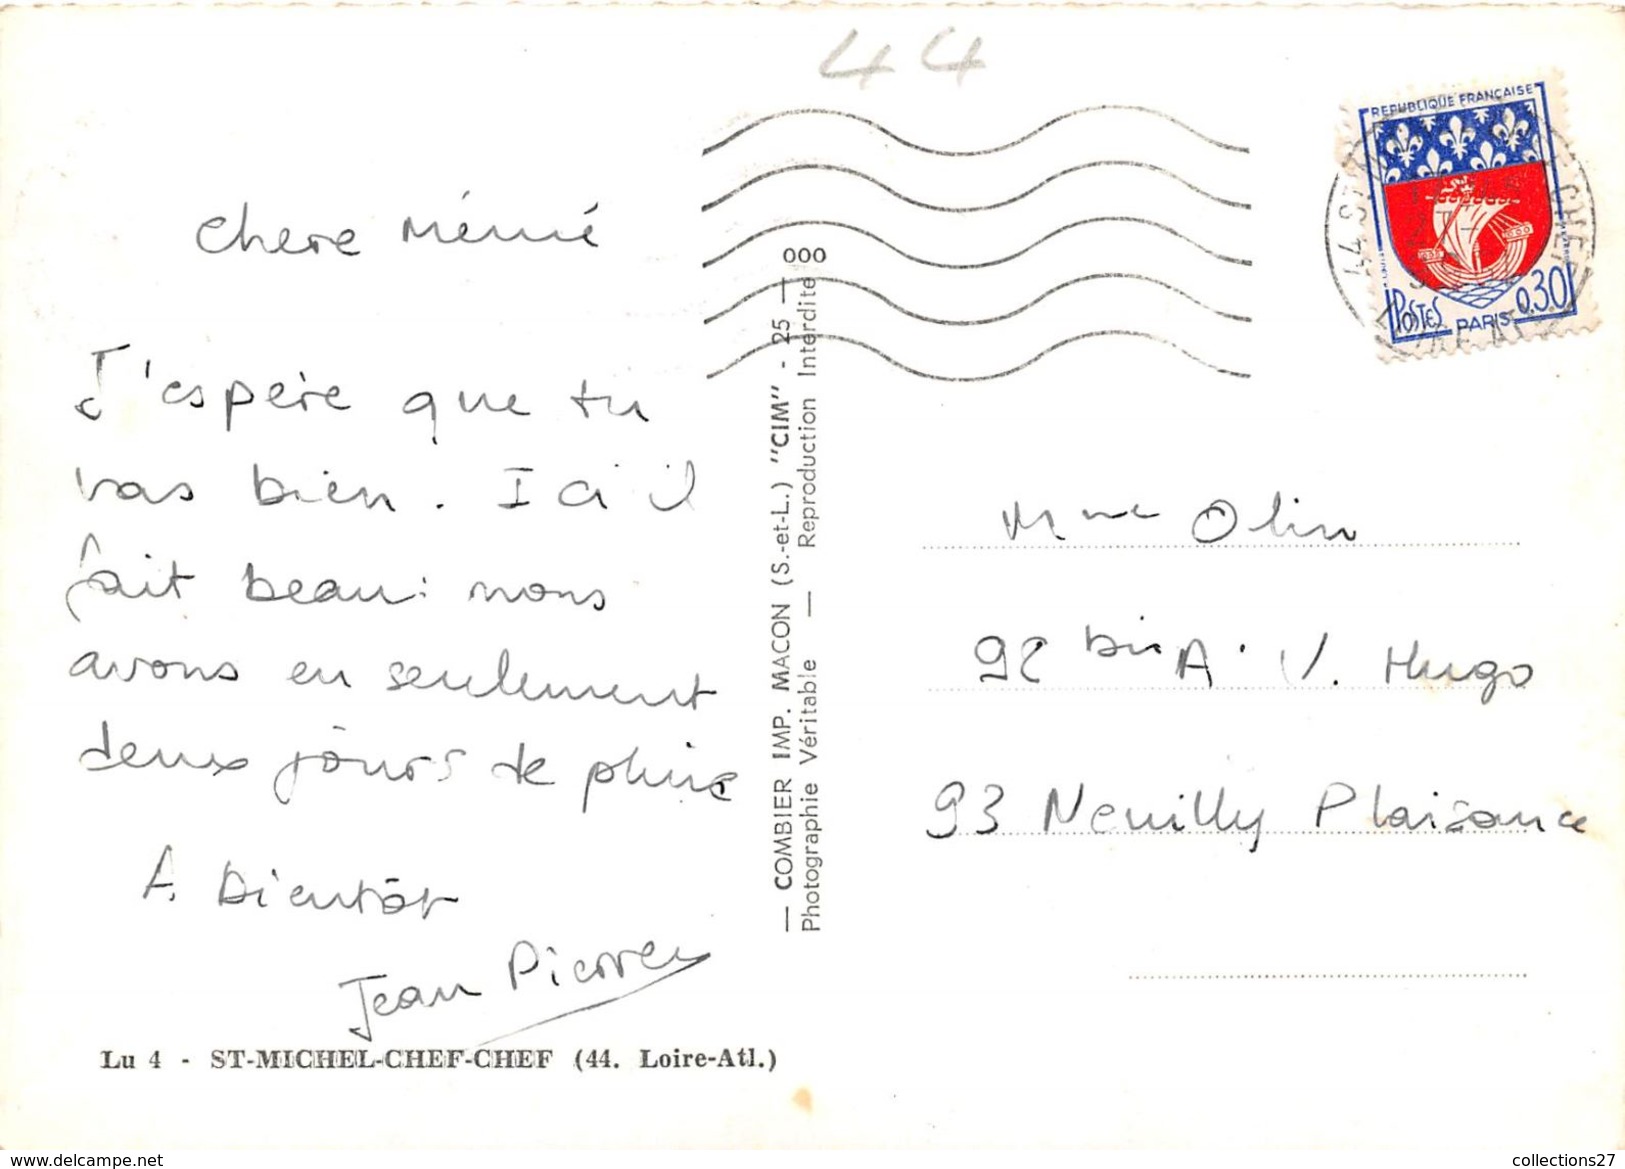 44
Chere Mémé
J'espère que tu
vas bien. Ici il
fait beau: nous
avons eu seulement
deux jours de pluie
A Bientôt
Jean Pierre
Lu 4 - ST-MICHEL-CHEF-CHEF (44. Loire-Atl.)
— COMBIER IMP. MACON (S.-et-L.) "CIM" - 25 — 000
Photographie Véritable — Reproduction Interdite
REPUBLIQUE FRANÇAISE
POSTES 0,30
PARIS
44 ST
CHEF
Mme Olin
92 bis A. V. Hugo
93 Neuilly Plaisance
collections27